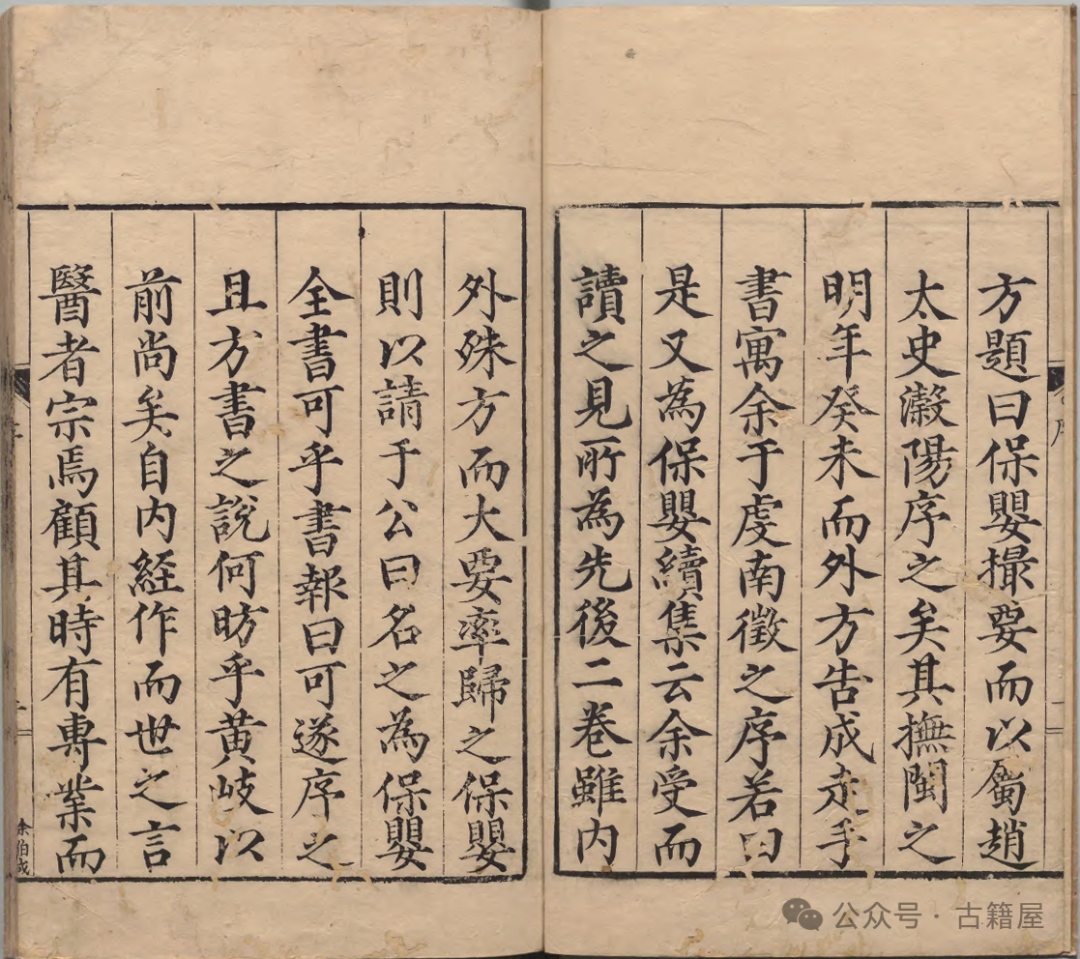 方題曰保嬰撮要而以屬趙
太史瀫陽序之矣其撫閩之
明年癸未而外方告成走手
書寓余于虔南徵之序若曰
是又為保嬰續集云余受而
讀之見所為先後二卷雖内
外殊方而大要率歸之保嬰
則以請于公曰名之為保嬰
全書可乎書報曰可遂序之
且方書之說何昉乎黄岐以
前尚矣自内経作而世之言
醫者宗焉顧其時有專業而
余伯成
公众号·古籍屋